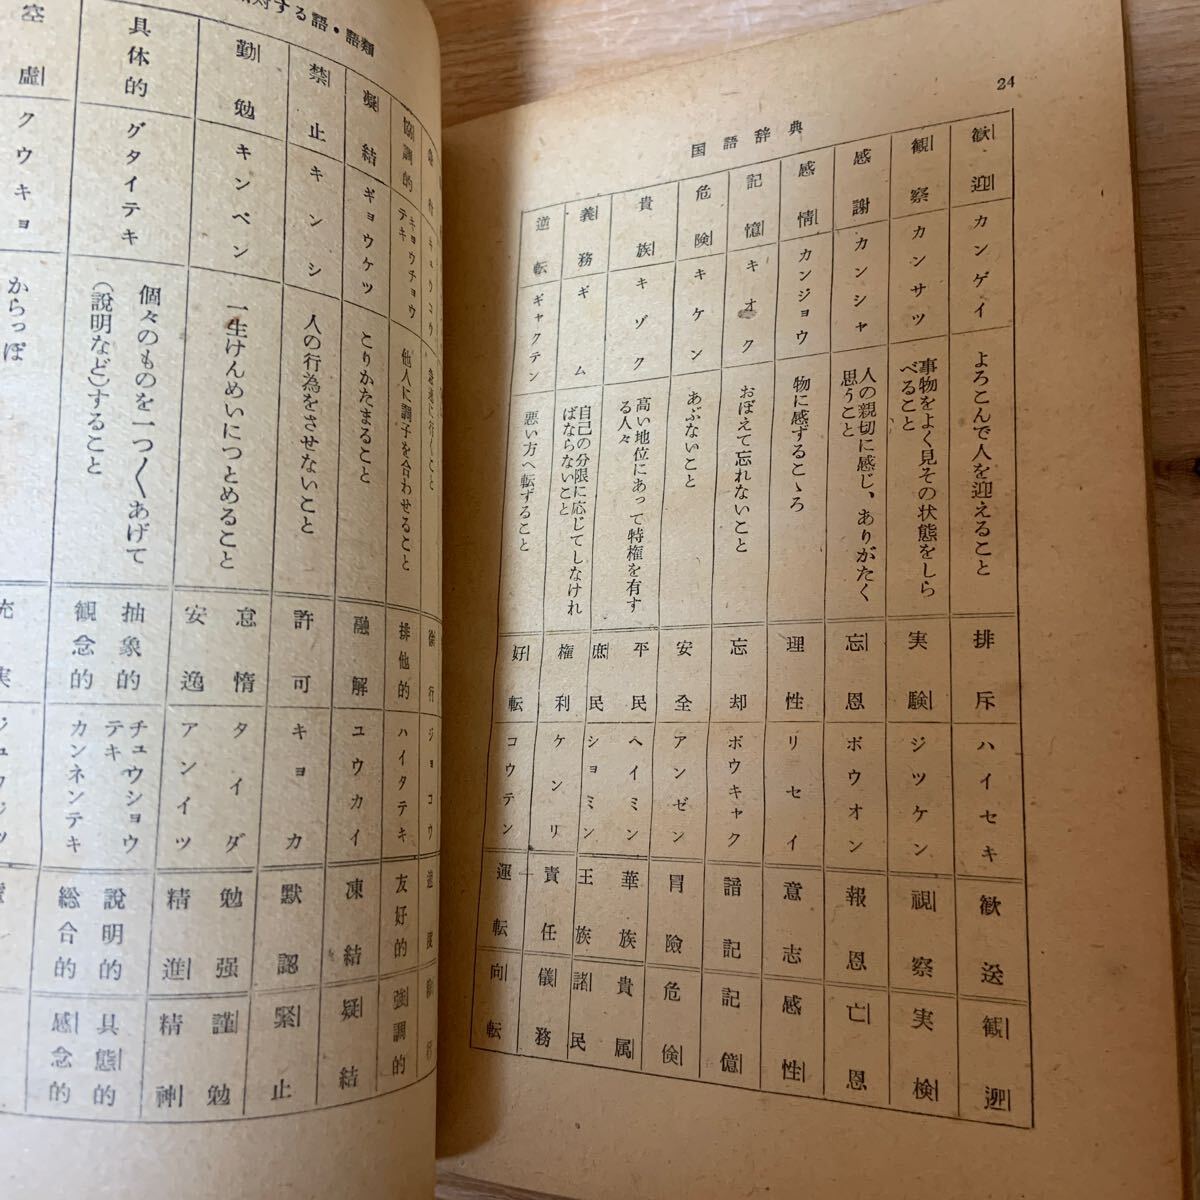 24
国語辞典
歓迎 カンゲイ よろこんで人を迎えること 排斥 ハイセキ 歓送 観迎
観察 カンサツ 事物をよく見その状態をしら
べること 実験 ジツケン 視察 実検
感謝 カンシャ 人の親切に感じ、ありがたく
思うこと 忘恩 ボウオン 報恩 亡恩
感情 カンジョウ 物に感ずるこゝろ 理性 リセイ 意志 感性
記憶 キオク おぼえて忘れないこと 忘却 ボウキャク 諳記 記億
危険 キケン あぶないこと 安全 アンゼン 冒険 危倹
貴族 キゾク 高い地位にあって特権を有す
る人々 平民 ヘイミン 華族 貴属
庶民 ショミン 王族 諸民
義務 ギム 自己の分限に応じてしなけれ
ばならないこと 権利 ケンリ 責任 儀務
逆転 ギャクテン 悪い方へ転ずること 好転 コウテン 運転 向転
対する語・語類
急速に行くこと 徐行 ジョコウ
協調的 キョウチョウ
テキ 他人に調子を合わせること 排他的 ハイタテキ 友好的 強調的
凝結 ギョウケツ こりかたまること 融解 ユウカイ 凍結 疑結
禁止 キンシ 人の行為をさせないこと 許可 キョカ 默認 緊止
勤勉 キンベン 一生けんめいにつとめること 怠惰 タイダ 勉强 謹勉
安逸 アンイツ 精進 精神
具体的 グタイテキ 個々のものを一つ〱あげて
(説明など)すること 抽象的 チュウショウ
テキ 説明的 具態的
観念的 カンネンテキ 総合的 感念的
空虚 クウキョ からっぽ 充実 ジュウジツ